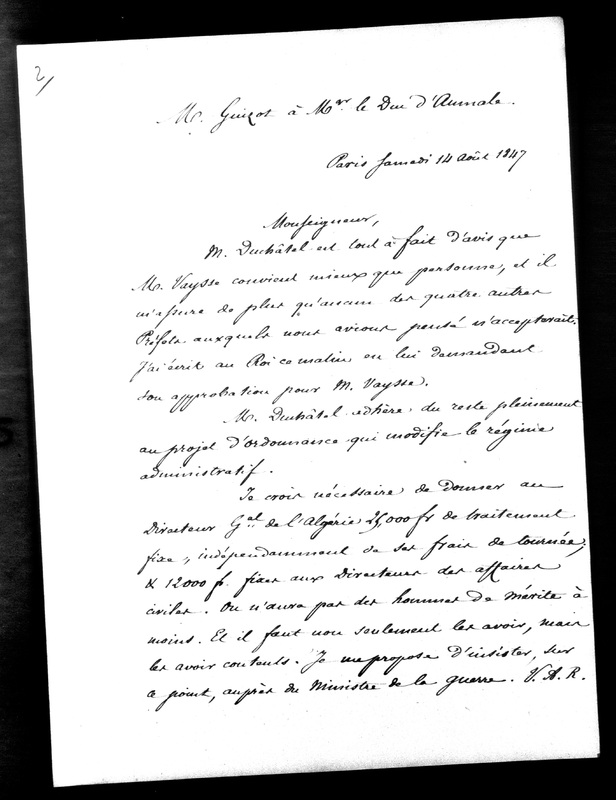 2/
M. Guizot à Mgr le Duc d'Aumale.
Paris Samedi 14 Août 1847
Monseigneur,
M. Duchâtel est tout à fait d'avis que
M. Vaysse convient mieux que personne, et il
m'assure de plus qu'aucun des quatre autres
Préfets auxquels nous avions pensé n'accepterait.
J'ai écrit au Roi ce matin en lui demandant
son approbation pour M. Vaysse.
M. Duchâtel adhère du reste pleinement
au projet d'ordonnance qui modifie le régime
administratif.
Je crois nécessaire de donner au
Directeur Gal de l'Algérie 25,000 fr de traitement
fixe, indépendamment de ses frais de tournée,
& 12000 fr. fixes aux Directeurs des affaires
civiles. On n'aura pas des hommes de mérite à
moins. Et il faut non seulement les avoir, mais
les avoir contents. Je me propose d'insister, sur
ce point, auprès du Ministre de la guerre. V. A. R.